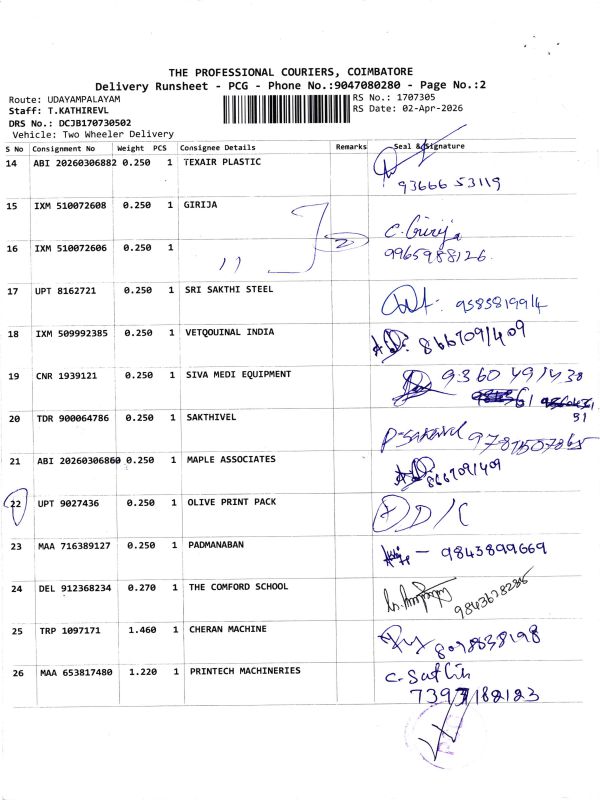 THE PROFESSIONAL COURIERS, COIMBATORE
Delivery Runsheet - PCG - Phone No.:9047080280 - Page No.:2
Route: UDAYAMPALAYAM RS No.: 1707305
Staff: T.KATHIREVL RS Date: 02-Apr-2026
DRS No.: DCJB170730502
Vehicle: Two Wheeler Delivery
S No Consignment No Weight PCS Consignee Details Remarks Seal & Signature
14 ABI 20260306882 0.250 1 TEXAIR PLASTIC
93666 53119
15 IXM 510072608 0.250 1 GIRIJA
C. Girija
16 IXM 510072606 0.250 1 2 9965988126
11
17 UPT 8162721 0.250 1 SRI SAKTHI STEEL
18 IXM 509992385 0.250 1 VETQOUINAL INDIA
8667091409
19 CNR 1939121 0.250 1 SIVA MEDI EQUIPMENT 9360491438
20 TDR 900064786 0.250 1 SAKTHIVEL
21 ABI 20260306860 0.250 1 MAPLE ASSOCIATES
8667091409
22 UPT 9027436 0.250 1 OLIVE PRINT PACK D/C
23 MAA 716389127 0.250 1 PADMANABAN
- 9843899669
24 DEL 912368234 0.270 1 THE COMFORD SCHOOL
25 TRP 1097171 1.460 1 CHERAN MACHINE
26 MAA 653817480 1.220 1 PRINTECH MACHINERIES
7397182123